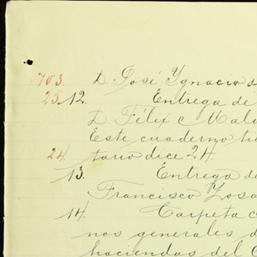 703. D. José Ygnacio d
23. 12. Entrega de
D. Félix C Malo
Este cuaderno ha
24. tario dice 24
13. Entrega de
Francisco Losa
14. Carpeta c
nos generales d
haciendas del C